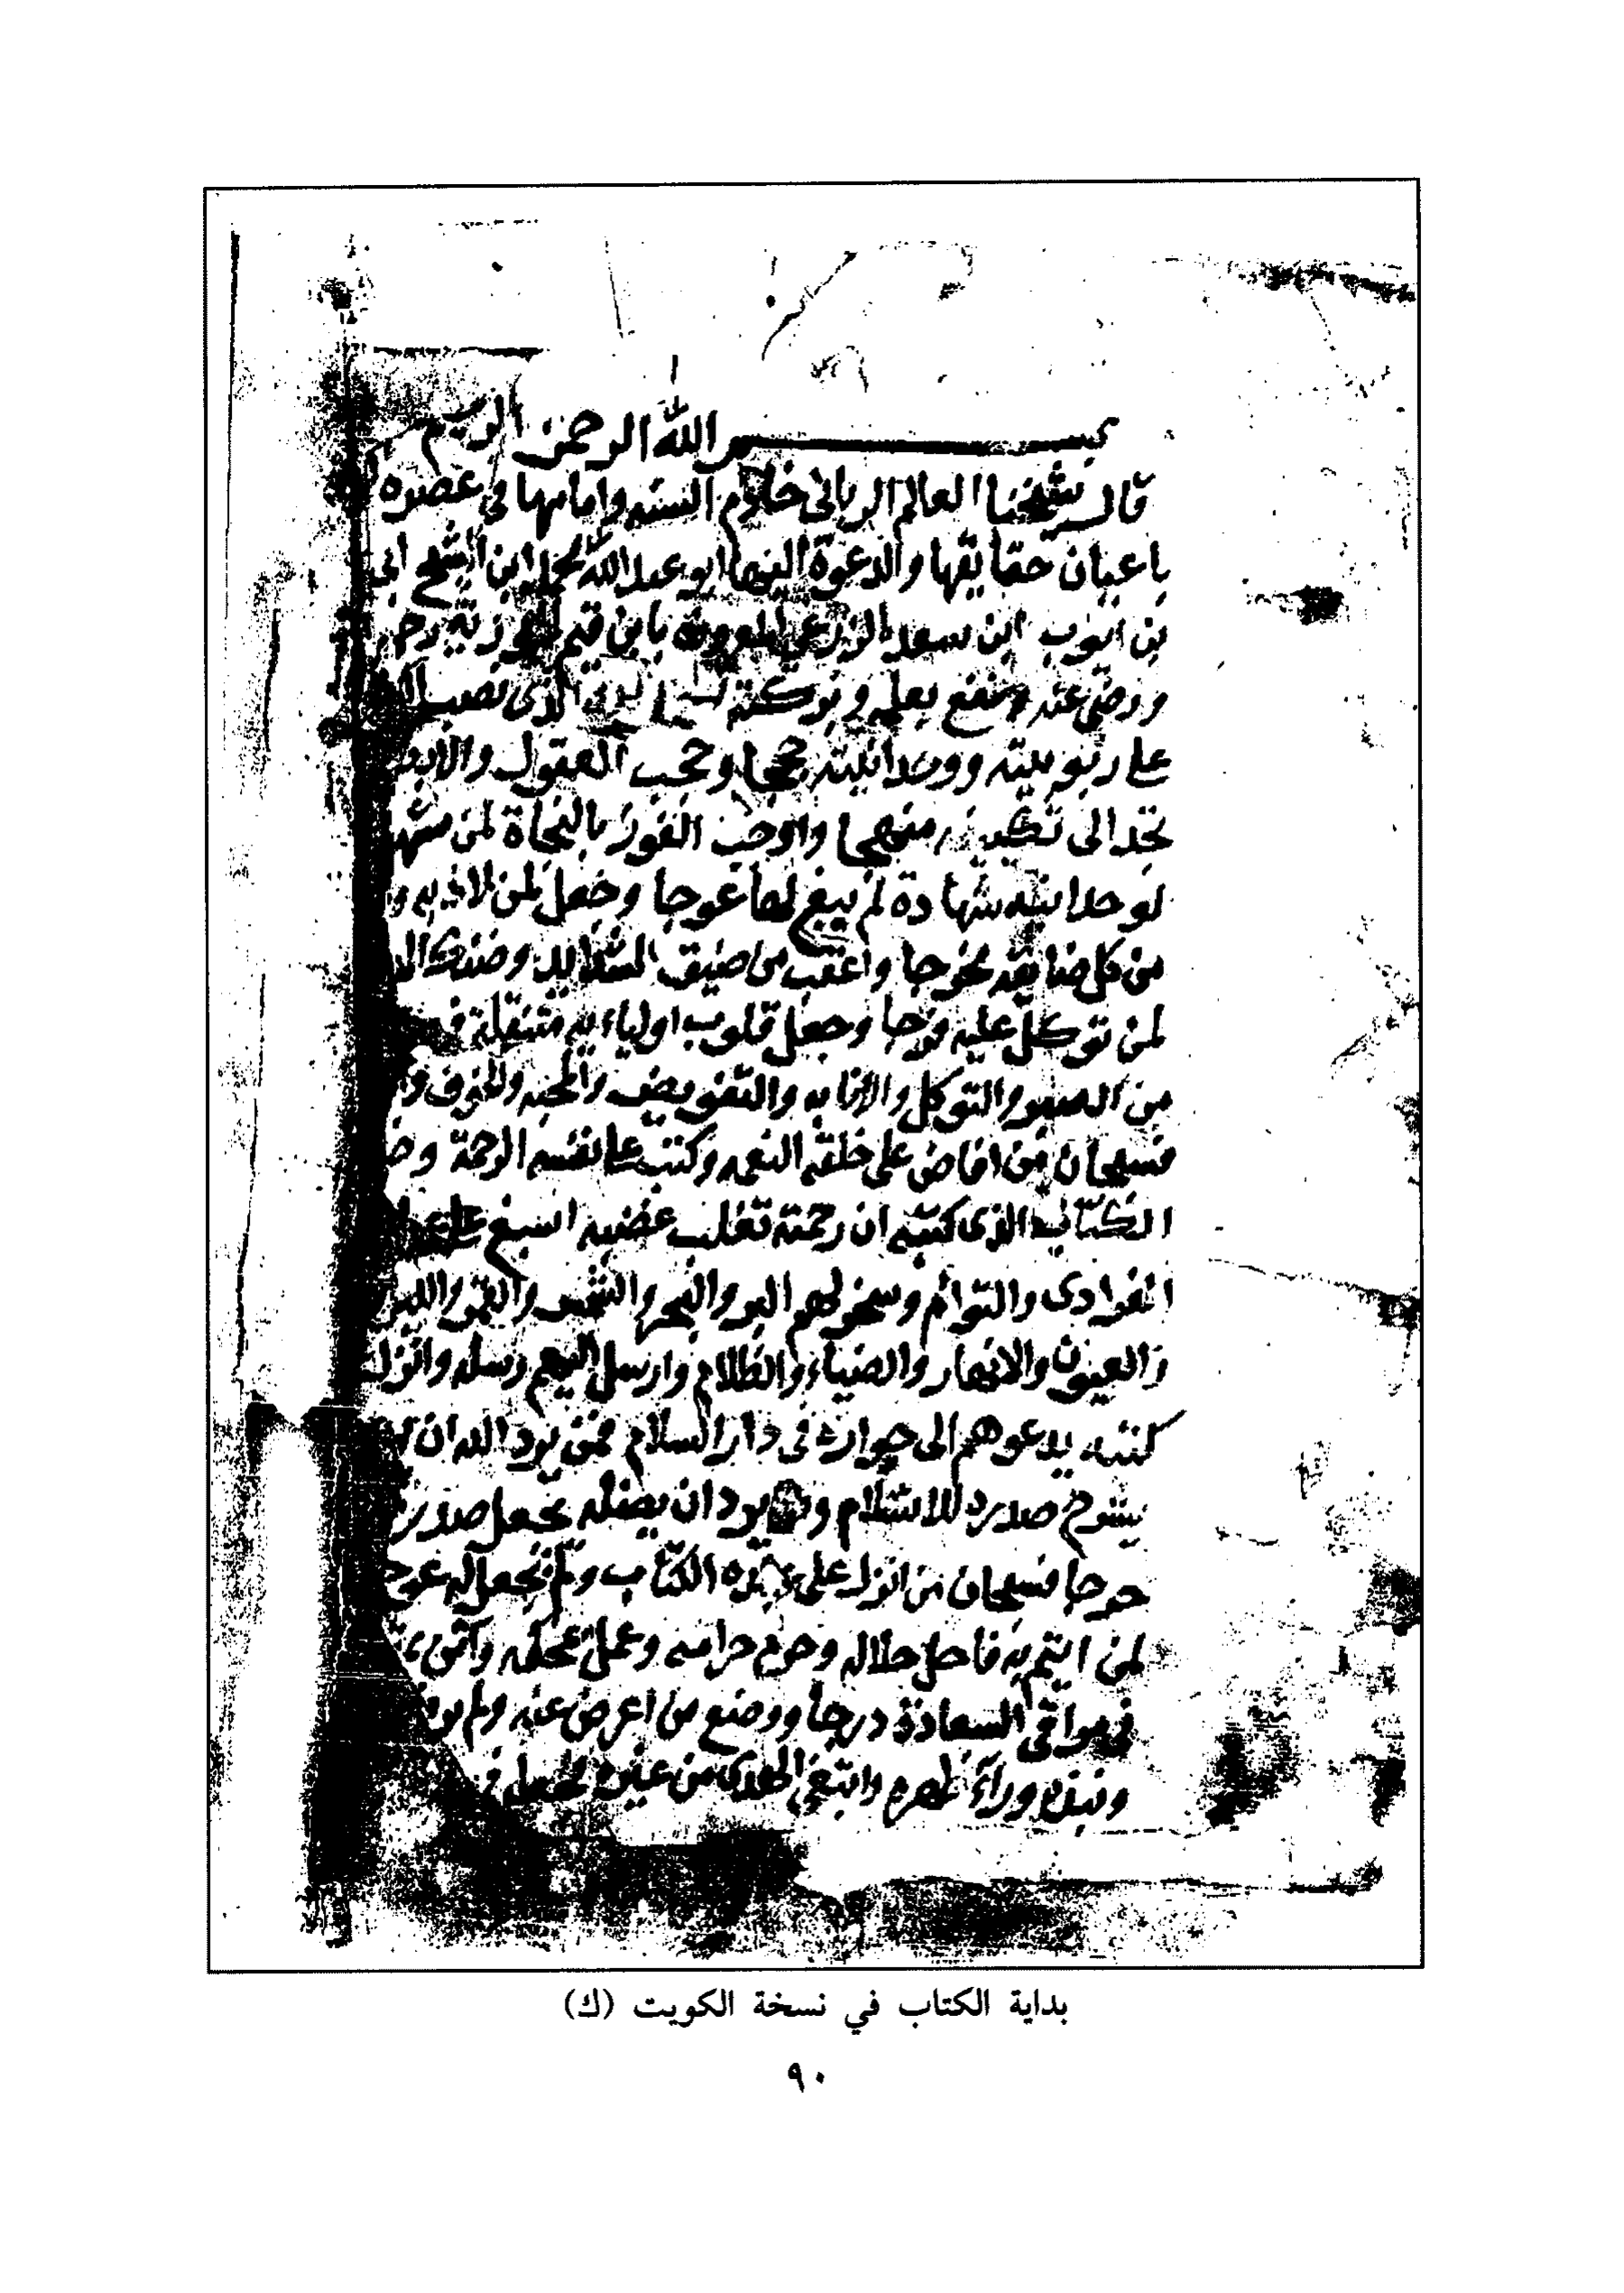 بسم الله الرحمن الرحيم
قال شيخنا العالم الرباني خادم السنه وامامها في عصره
باعيان حقايقها والدعوة اليها ابو عبد الله محمد ابن الشيخ ابي
بن ايوب ابن سعد الزرعي المعروف بابن قيم الجوزية رحمه
ورضي عنه ونفع بعلمه وبركته الذي نصب
على ربوبيته ووحدانيته حججا وحجب العقول
تجد الى منهجا واوجب الفوز بالنجاة لمن شهد
لوحدانيته شهادة لم يبغ لها عوجا وجعل لمن لاذ به و
من كل ضايقه مخرجا واعقب من ضيق الشدايد وضنك
لمن توكل عليه فرجا وجعل قلوب اوليايه متنقلة في
من الصبر والتوكل والانابه والتفويض والمحبه والخوف و
فسبحان من افاض على خلقه النعمه وكتب على نفسه الرحمة
الكتاب الذي كتبه ان رحمته تغلب غضبه اسبغ على
الفرادى والتوام وسخر لهم البر والبحر والشمس والقمر والليل
والعيون والانهار والضياء والظلام وارسل اليهم رسله وانزل
كتبه يدعوهم الى جواره في دار السلام فمن يرد الله ان
يشرح صدره للاسلام ومن يرد ان يضله يجعل صدره
حرجا فسبحان من انزل على عبده الكتاب ولم يجعل له عوجا
لمن ايتم به فاحل حلاله وحرم حرامه وعمل بمحكمه
في مراقي السعادة درجا ووضع من اعرض عنه ولم
ونبذه ورآء ظهره وابتغى الهدى من غيره فجعله في
بداية الكتاب في نسخة الكويت (ك)
٩٠